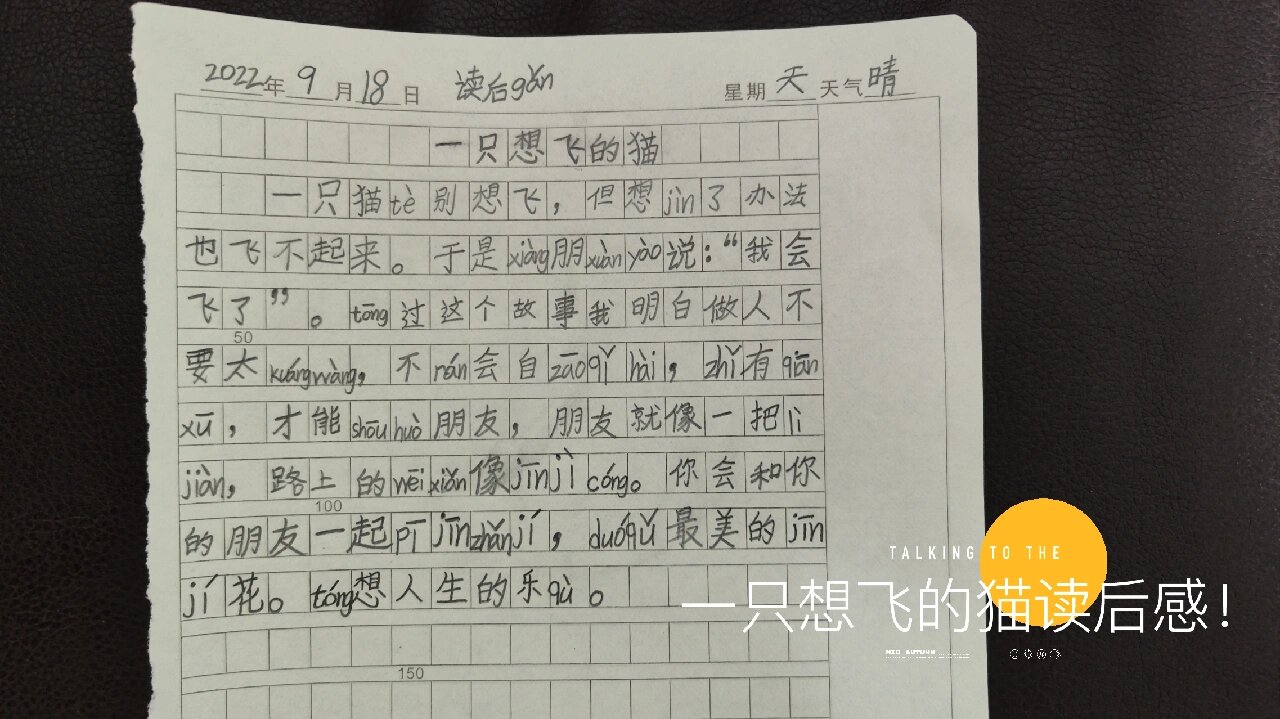 2022年9月18日 读后gǎn 星期天 天气晴
一只想飞的猫
一只猫tè别想飞，但想jìn了办法
也飞不起来。于是xiàng朋xuàn yào说：“我会
飞了”。tōng过这个故事我明白做人不
50
要太kuáng wàng，不rán会自zāo qǐ hài，zhǐ有qiān
xū，才能shōu huò朋友，朋友就像一把lì
jiàn，路上的wēi xiǎn像jīn jì cóng。你会和你
100
的朋友一起pī jīn zhǎn jí，duó qǔ最美的jīn
jí花。tóng想人生的乐qù。
150
TALKING TO THE
一只想飞的猫读后感！